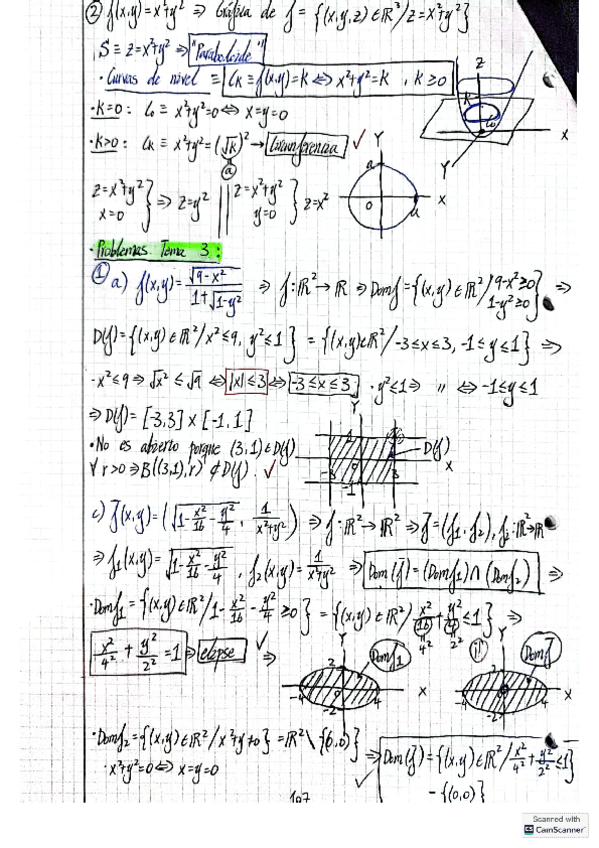 ② f(x,y)=x²+y² ⇒ Gráfica de f = {(x,y,z) ∈ ℝ³/z=x²+y²}
S ≡ z=x²+y² ⇒ "Paraboloide"
· Curvas de nivel ≡ Cκ ≡ f(x,y)=K ⇔ x²+y²=K , K≥0
· K=0: C₀ ≡ x²+y²=0 ⇔ x=y=0
· K>0: Cκ ≡ x²+y²=(√K)² → Circunferencia ✓
a
z=x²+y² x=0 } ⇒ z=y² || z=x²+y² y=0 } z=x²
Z
K
C₀
X
Y
Y
a
0
a
X
· Problemas Tema 3:
① a) f(x,y)= √(9-x²) / (1+√(1-y²)) ⇒ f:ℝ² → ℝ ⇒ Dom f = {(x,y) ∈ ℝ²/ 9-x²≥0 1-y²≥0} ⇒
D(f)={(x,y) ∈ ℝ²/ x²≤9, y²≤1} = {(x,y) ∈ ℝ²/ -3≤x≤3, -1≤y≤1} ⇒
· x²≤9 ⇒ √x² ≤ √9 ⇔ |x|≤3 ⇔ -3≤x≤3 · y²≤1 ⇒ " ⇔ -1≤y≤1
⇒ D(f) = [-3,3] x [-1,1]
· No es abierto porque (3,1) ∈ D(f)
∀ r>0 ⇒ B((3,1), r) ⊄ D(f). ✓
Y
1
D(f)
-3
0
3
X
-1
c) f̄(x,y) = (√(1-x²/16-y²/4), 1/(x²+y²)) ⇒ f:ℝ² → ℝ² ⇒ f̄=(f₁,f₂), fᵢ:ℝ²→ℝ
⇒ f₁(x,y)=√(1-x²/16-y²/4), f₂(x,y)=1/(x²+y²) ⇒ Dom(f̄)=(Domf₁)∩(Domf₂) ⇒
· Domf₁ = {(x,y) ∈ ℝ²/ 1-x²/16-y²/4 ≥0} = {(x,y) ∈ ℝ²/ x²/16+y²/4 ≤1} ⇒
4² 2²
x²/4² + y²/2² = 1 ⇒ elipse ✓ ⇒
Y
Domf₁
2
-4
0
4
X
-2
Y
Domf̄
2
-4
4
X
-2
· Domf₂={(x,y) ∈ ℝ²/ x²+y²≠0} = ℝ² \ {(0,0)} ⇒ Dom(f̄)={(x,y) ∈ ℝ²/ x²/4²+y²/2² ≤1}
· x²+y²=0 ⇔ x=y=0
- {(0,0)}
✓
107
Scanned with
CS CamScanner